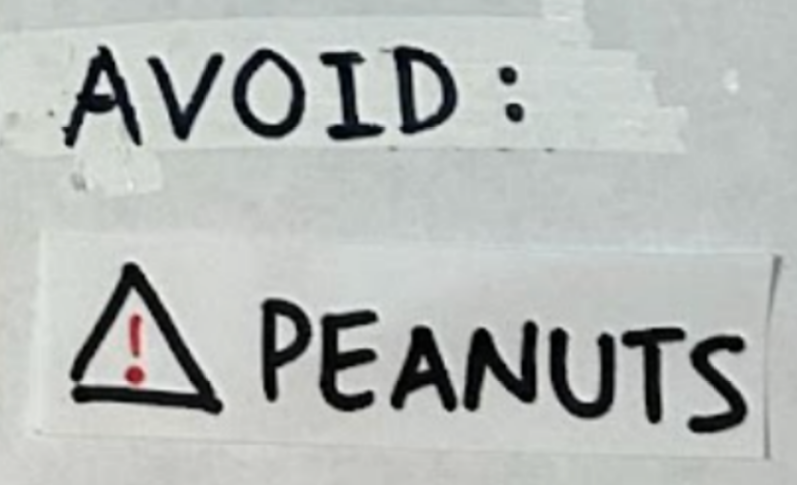 AVOID:
⚠ PEANUTS